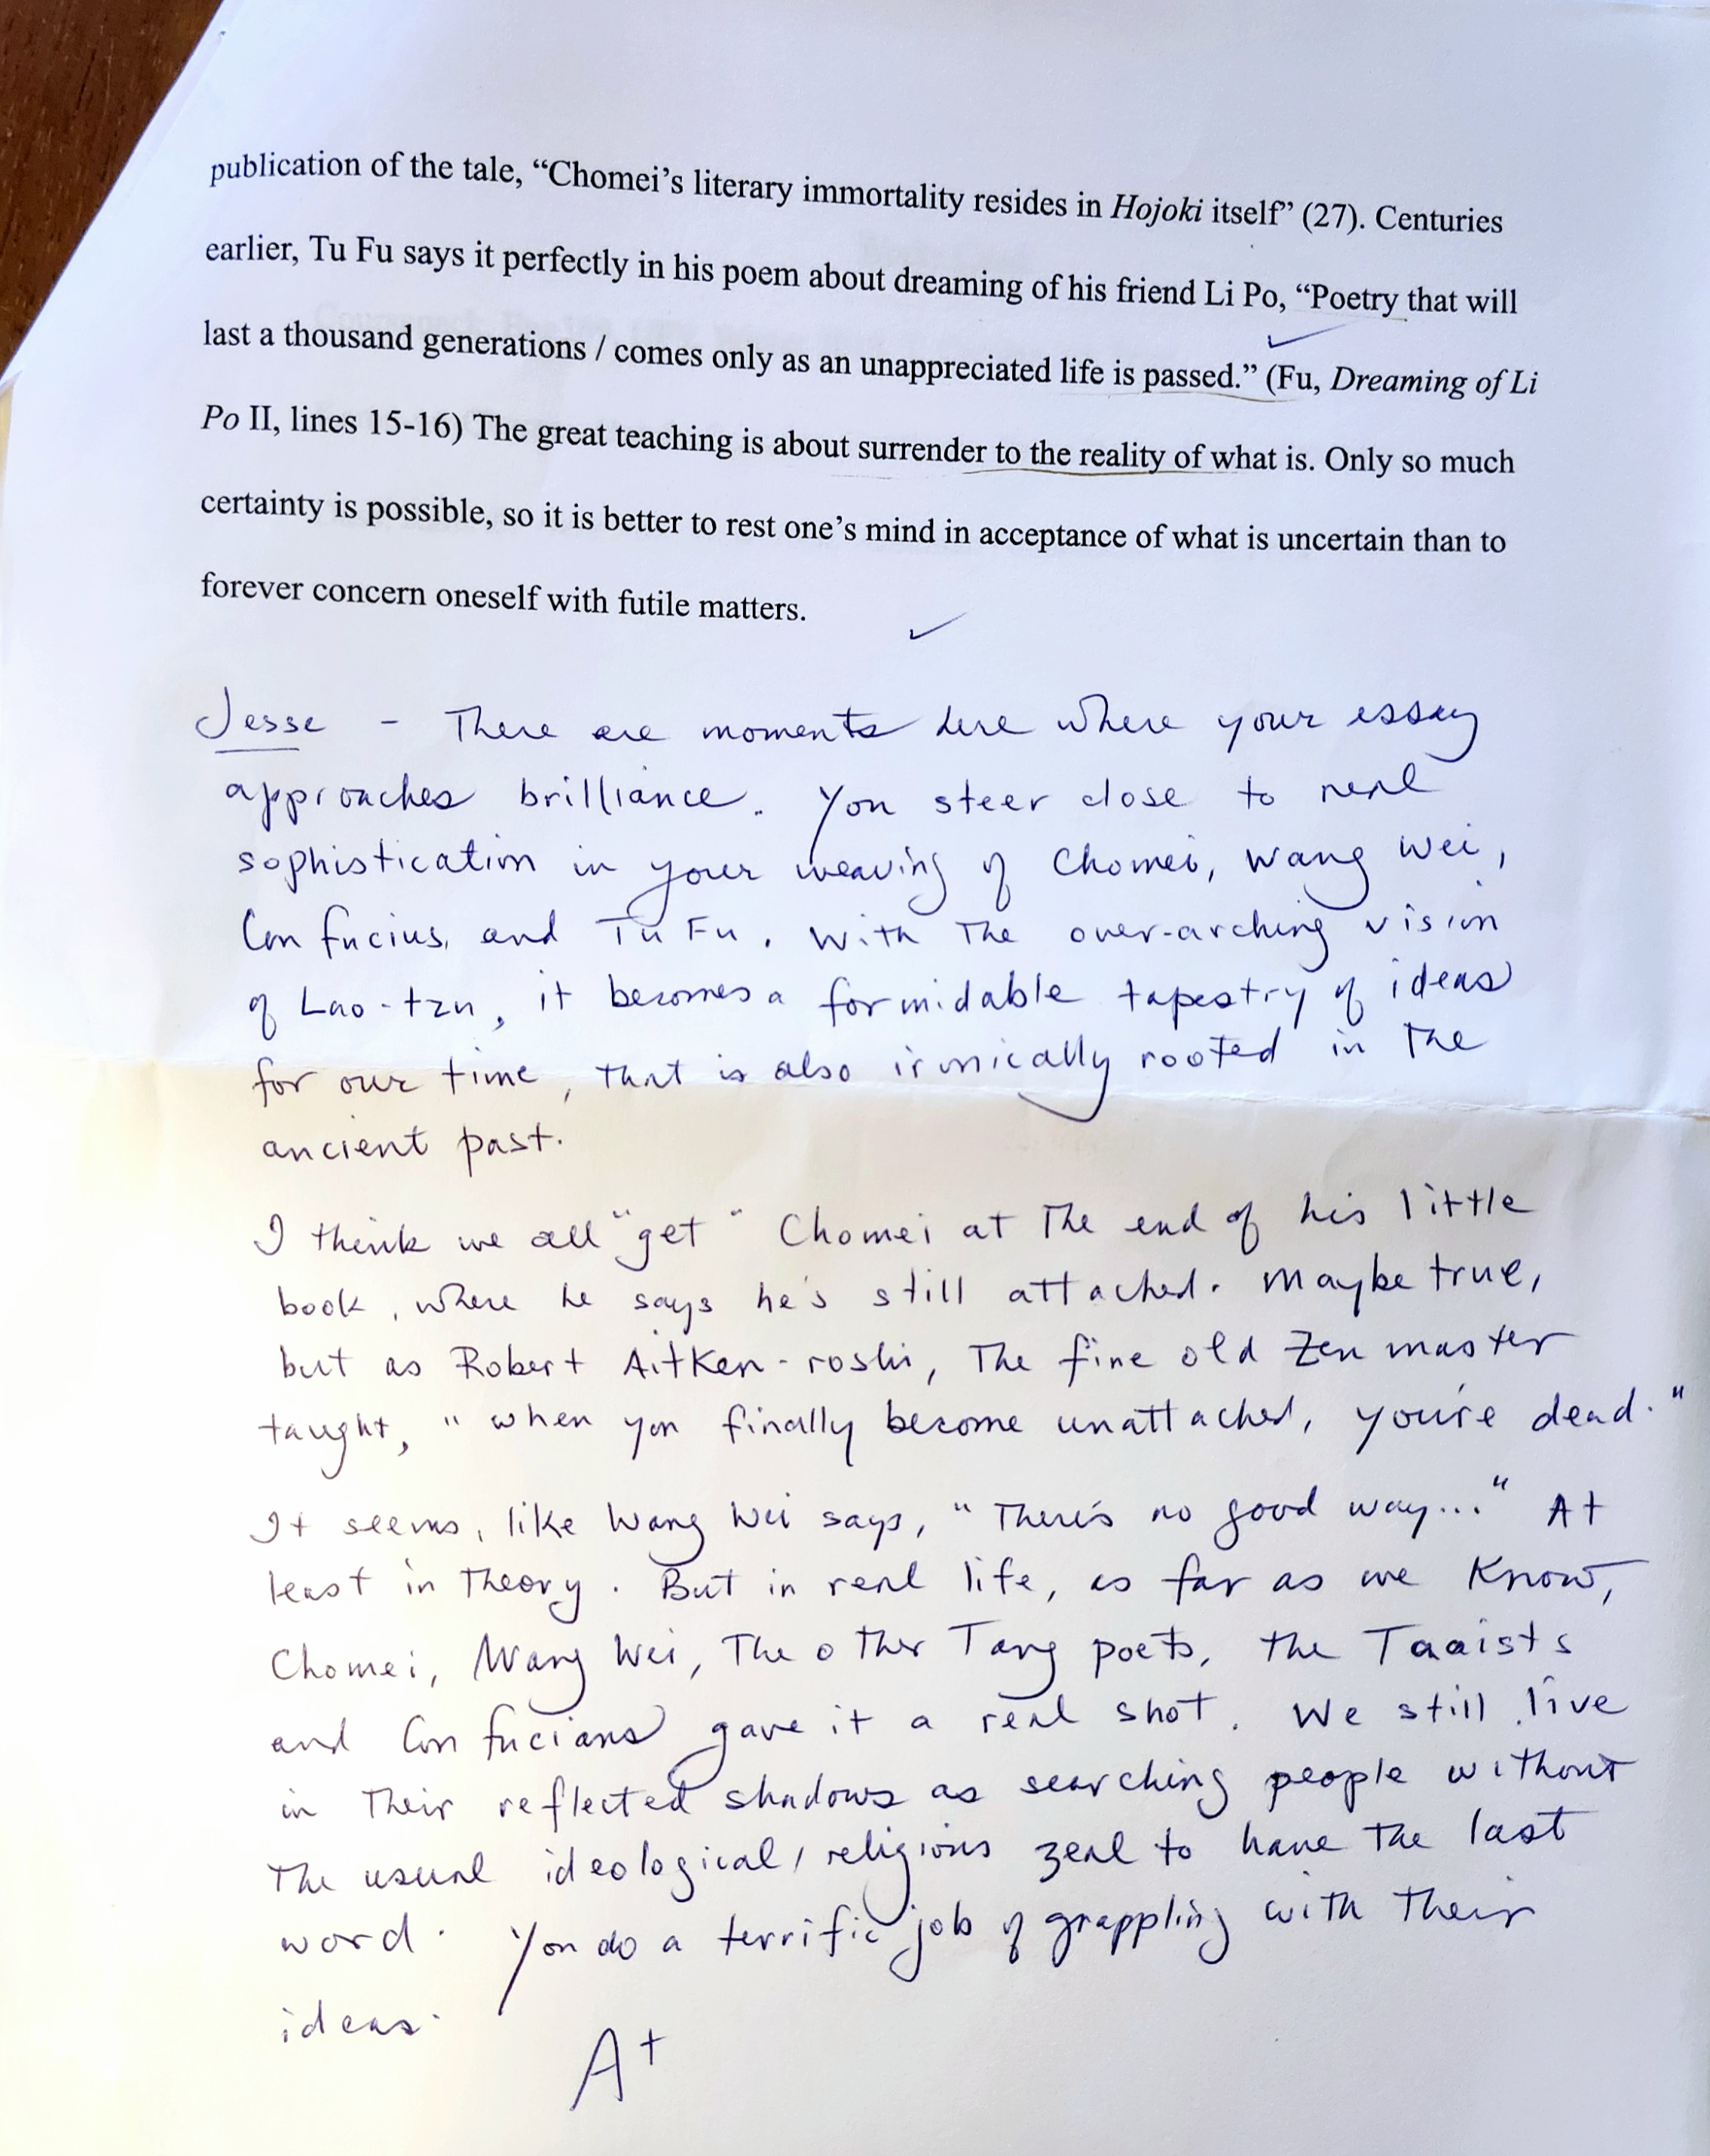 publication of the tale, “Chomei’s literary immortality resides in Hojoki itself” (27). Centuries
earlier, Tu Fu says it perfectly in his poem about dreaming of his friend Li Po, “Poetry that will
last a thousand generations / comes only as an unappreciated life is passed.” (Fu, Dreaming of Li
Po II, lines 15-16) The great teaching is about surrender to the reality of what is. Only so much
certainty is possible, so it is better to rest one’s mind in acceptance of what is uncertain than to
forever concern oneself with futile matters.
Jesse - There are moments here where your essay
approaches brilliance. You steer close to real
sophistication in your weaving of Chomei, Wang Wei,
Confucius, and Tu Fu. With the over-arching vision
of Lao-tzu, it becomes a formidable tapestry of ideas
for our time, that is also ironically rooted in the
ancient past.
I think we all "get" Chomei at the end of his little
book, where he says he's still attached. Maybe true,
but as Robert Aitken-roshi, the fine old Zen master
taught, "when you finally become unattached, you're dead."
It seems, like Wang Wei says, "There's no good way..." At
least in theory. But in real life, as far as we know,
Chomei, Wang Wei, the other Tang poets, the Taoists
and Confucians gave it a real shot. We still live
in their reflected shadows as searching people without
the usual ideological/religious zeal to have the last
word. You do a terrific job of grappling with their
ideas.
A+